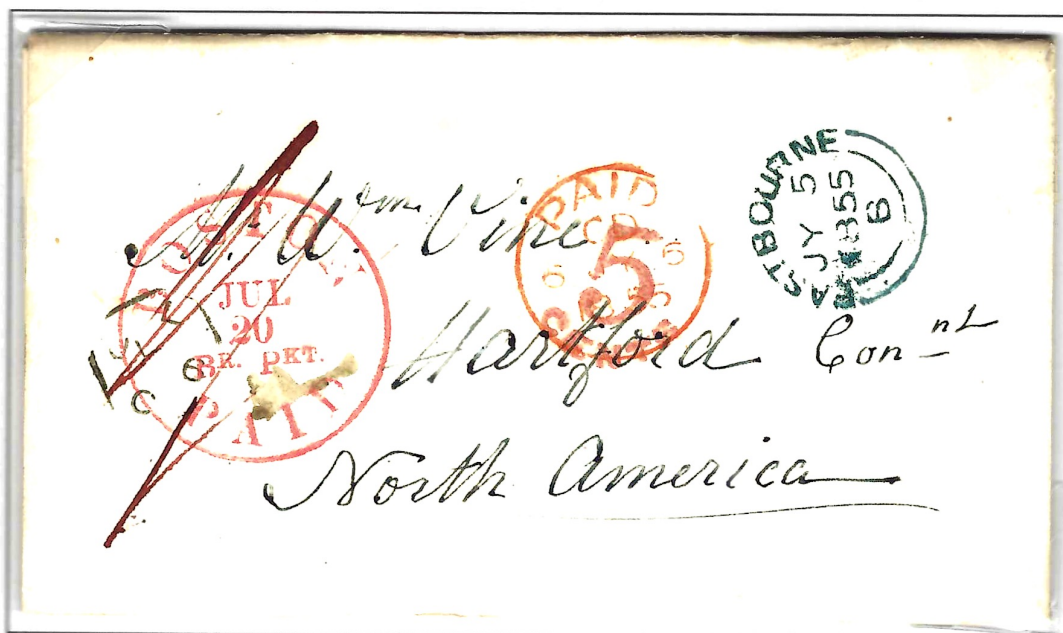 Mr. Wm. Vine
Hartford Con_nt
North America
BOSTON
JUL
20
BR. PKT.
PAID
PAID
5
CENTS
EASTBOURNE
JY 5
1855
B